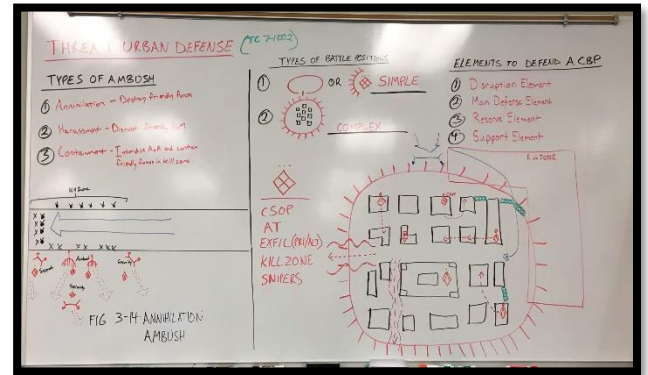 THREAT URBAN DEFENSE (TC 7-100.2)
TYPES OF AMBUSH
① Annihilation - Destroy friendly force
② Harassment - Disrupt friendly
③ Containment - Interdict AoA and contain
friendly force in kill zone
Kill Zone
Security
Assault
Security
FIG 3-14 ANNIHILATION
AMBUSH
TYPES OF BATTLE POSITIONS
① OR SIMPLE
② COMPLEX
CSOP
AT
EXFIL (PRI/ALT)
KILLZONE
SNIPERS
ELEMENTS TO DEFEND A CBP
① Disruption Element
② Main Defense Element
③ Reserve Element
④ Support Element
KILLZONE